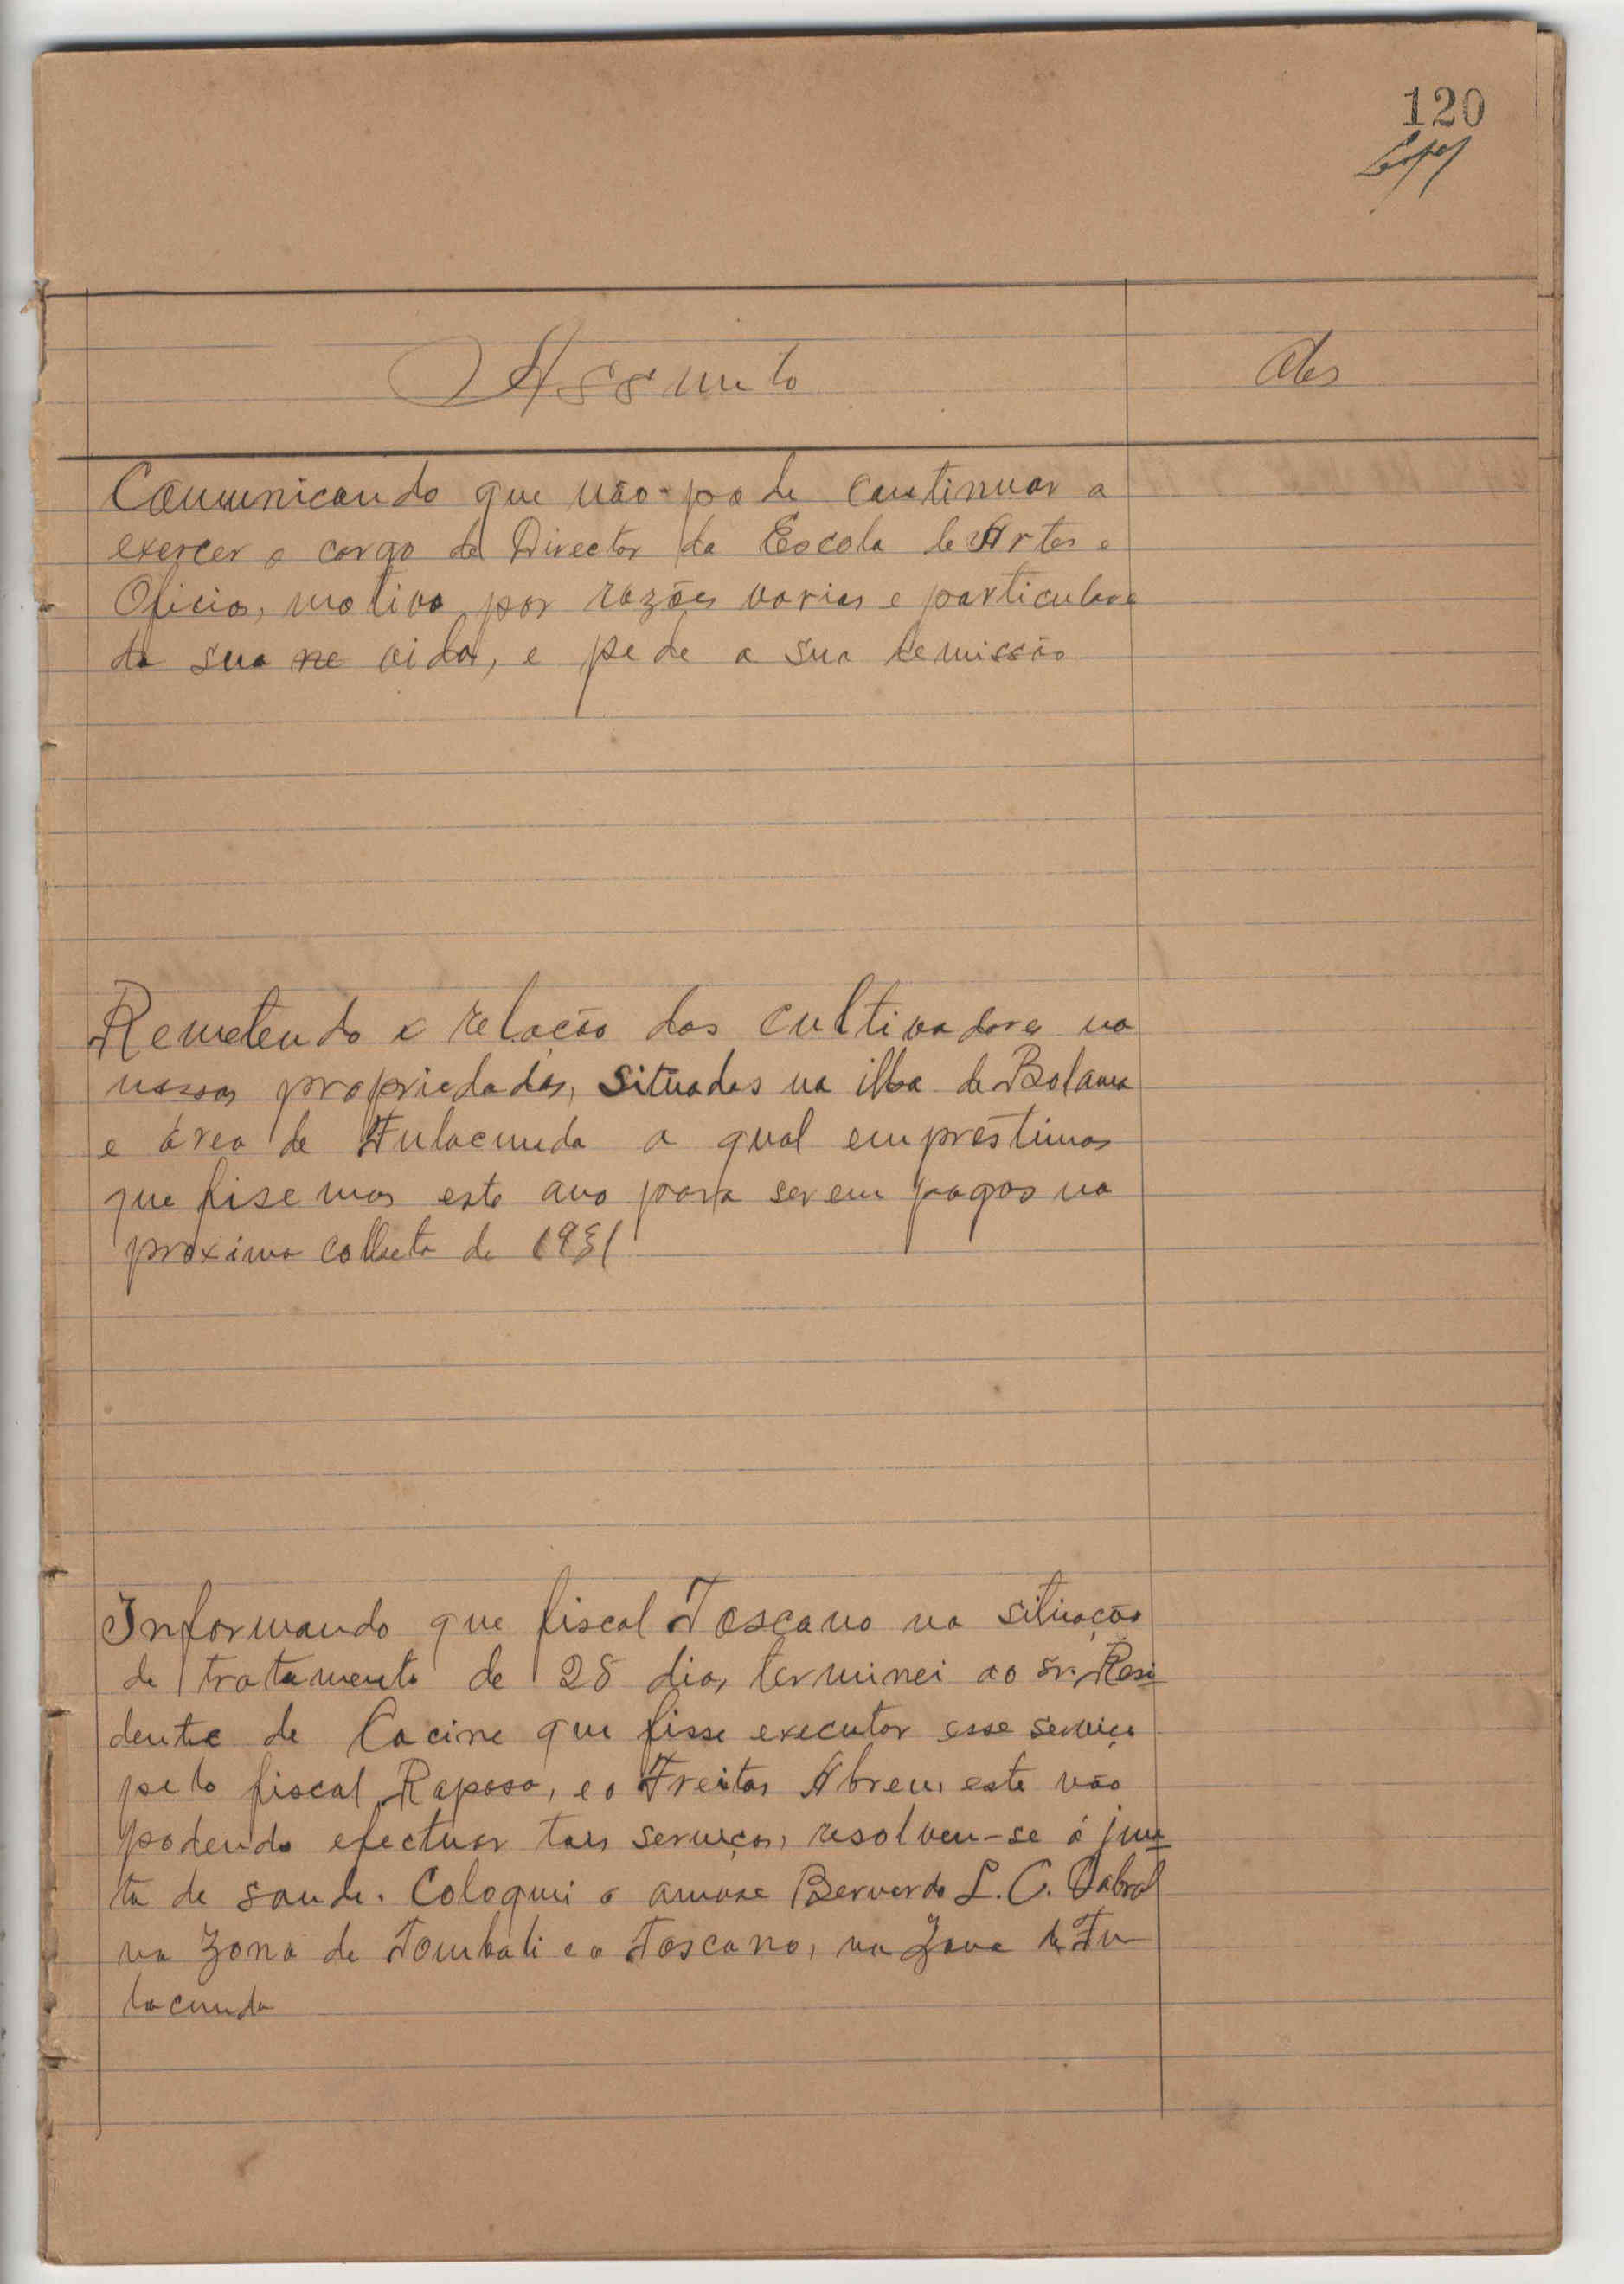 120
Assunto
Obs
Comunicando que não pode continuar a
exercer o cargo de Director da Escola de Artes e
Oficios, motivo por razões varias e particulare
da sua ne vida, e pede a sua demissão
Remetendo a relação dos cultivadores na
nossas propriedades, situadas na ilha de Bolama
e área de Fulacunda a qual emprestimos
que fisemos este ano para serem pagos na
proxima colheta de 1931
Informando que fiscal Toscano na situação
de tratamento de 28 dias, terminei ao sr. Resi
dente de Cacine que fisse executar esse serviço
pelo fiscal Raposo, e o Freitas Abreu, este não
podendo efectuar tais serviços, resolveu-se á jun
ta de saude. Coloquei o Bernardo L. C. Cabral
na zona de Tombali e o Toscano, na zona de Fu
lacunda